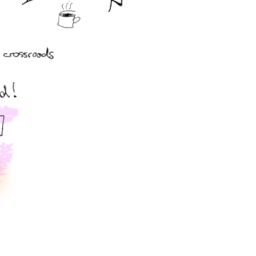 crossroads
d!